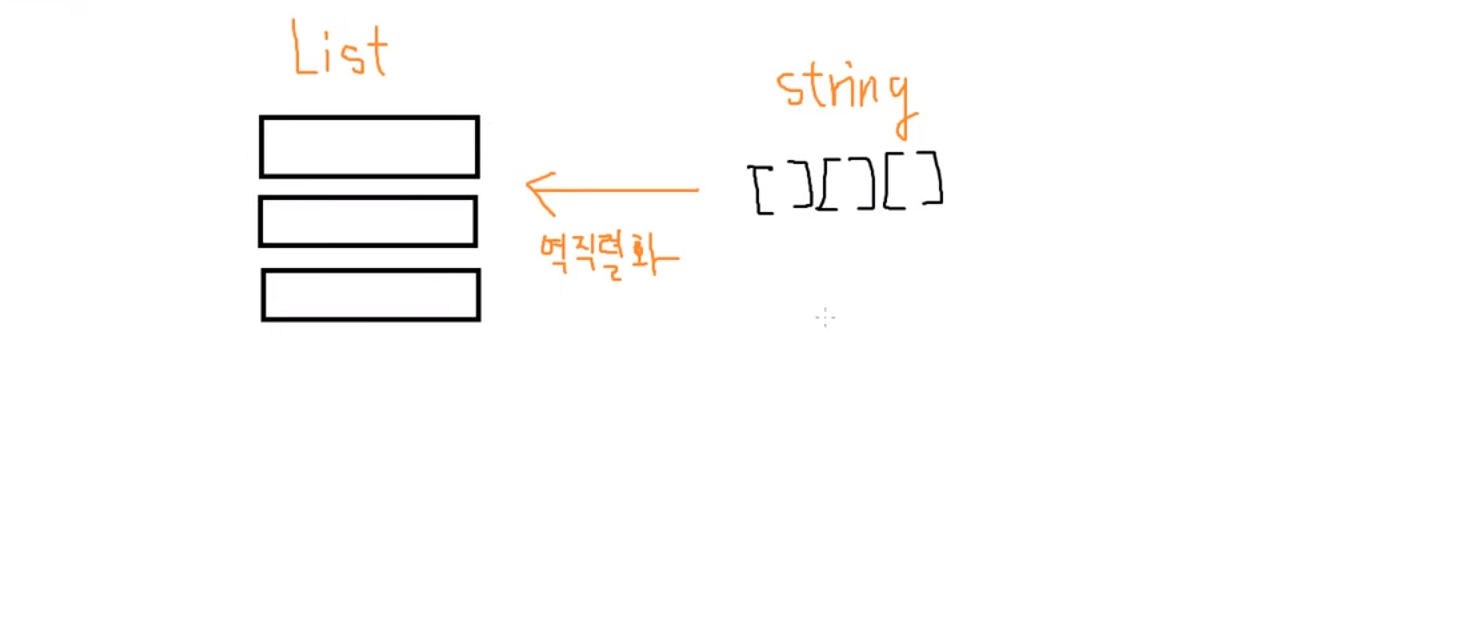 List
string
[][][]
역직렬화